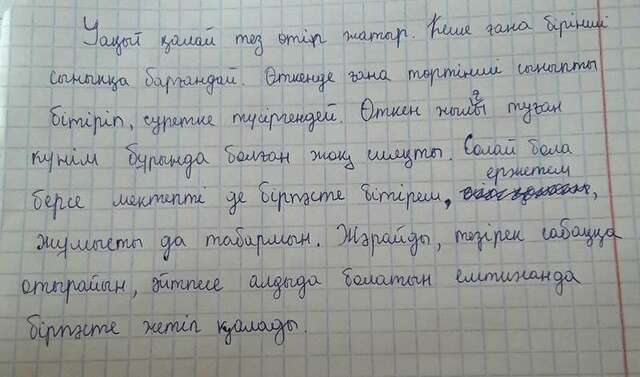 Уақыт қалай тез өтіп жатыр. Кеше ғана бірінші
сыныпқа барғандай. Өткенде ғана төртінші сыныпты
бітіріп, суретке түсіргендей. Өткен жылғы туған
күнім бұрында болған жоқ сияқты. Солай бола
ержетем
берсе мектепті де бірпәсте бітірем, ,
жұмысты да табармын. Жарайды, тезірек сабаққа
отырайын, әйтпесе алдыда болатын емтиханда
бірпәсте жетіп қалады.